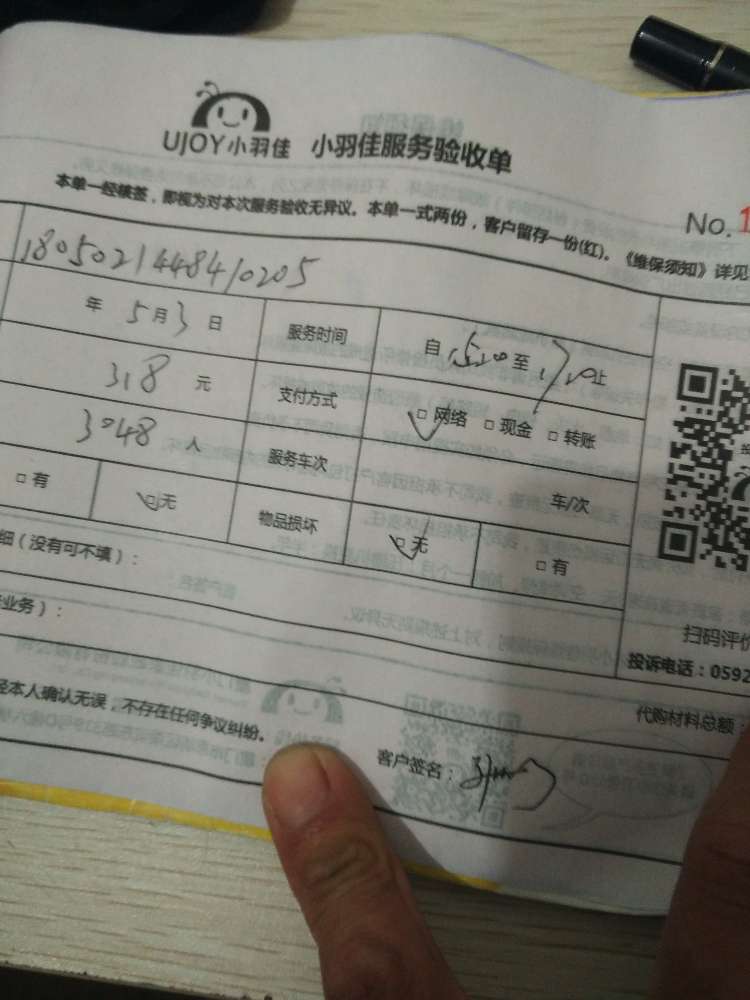 UJOY小羽佳 小羽佳服务验收单
本单一经核签，即视为对本次服务验收无异议。本单一式两份，客户留存一份(红)。《维保须知》详见
No.1
1805021448410205
年 5月3日 服务时间 自 15:00 至 17:20 止
318 元 支付方式 □网络 □现金 □转账
3048 人 服务车次 车/次
□有 □无 物品损坏 □无 □有
细（没有可不填）：
业务）：
扫码评价
投诉电话：0592
代购材料总额：
经本人确认无误，不存在任何争议纠纷。
客户签名：